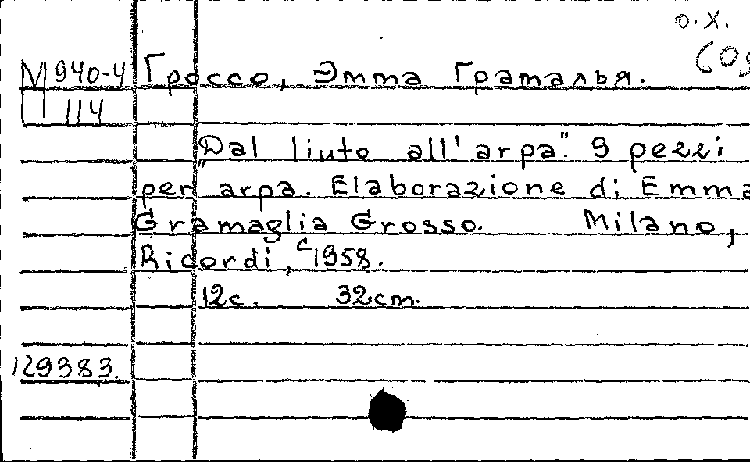 О.Х.
М 940-4 Гроссо, Эмма Грамалья.
П 114
"Dal liuto all'arpa". 9 pezzi
per arpa. Elaborazione di Emma
Gramaglia Grosso. Milano,
Ricordi, c1958.
12с. 32cm.
129383.